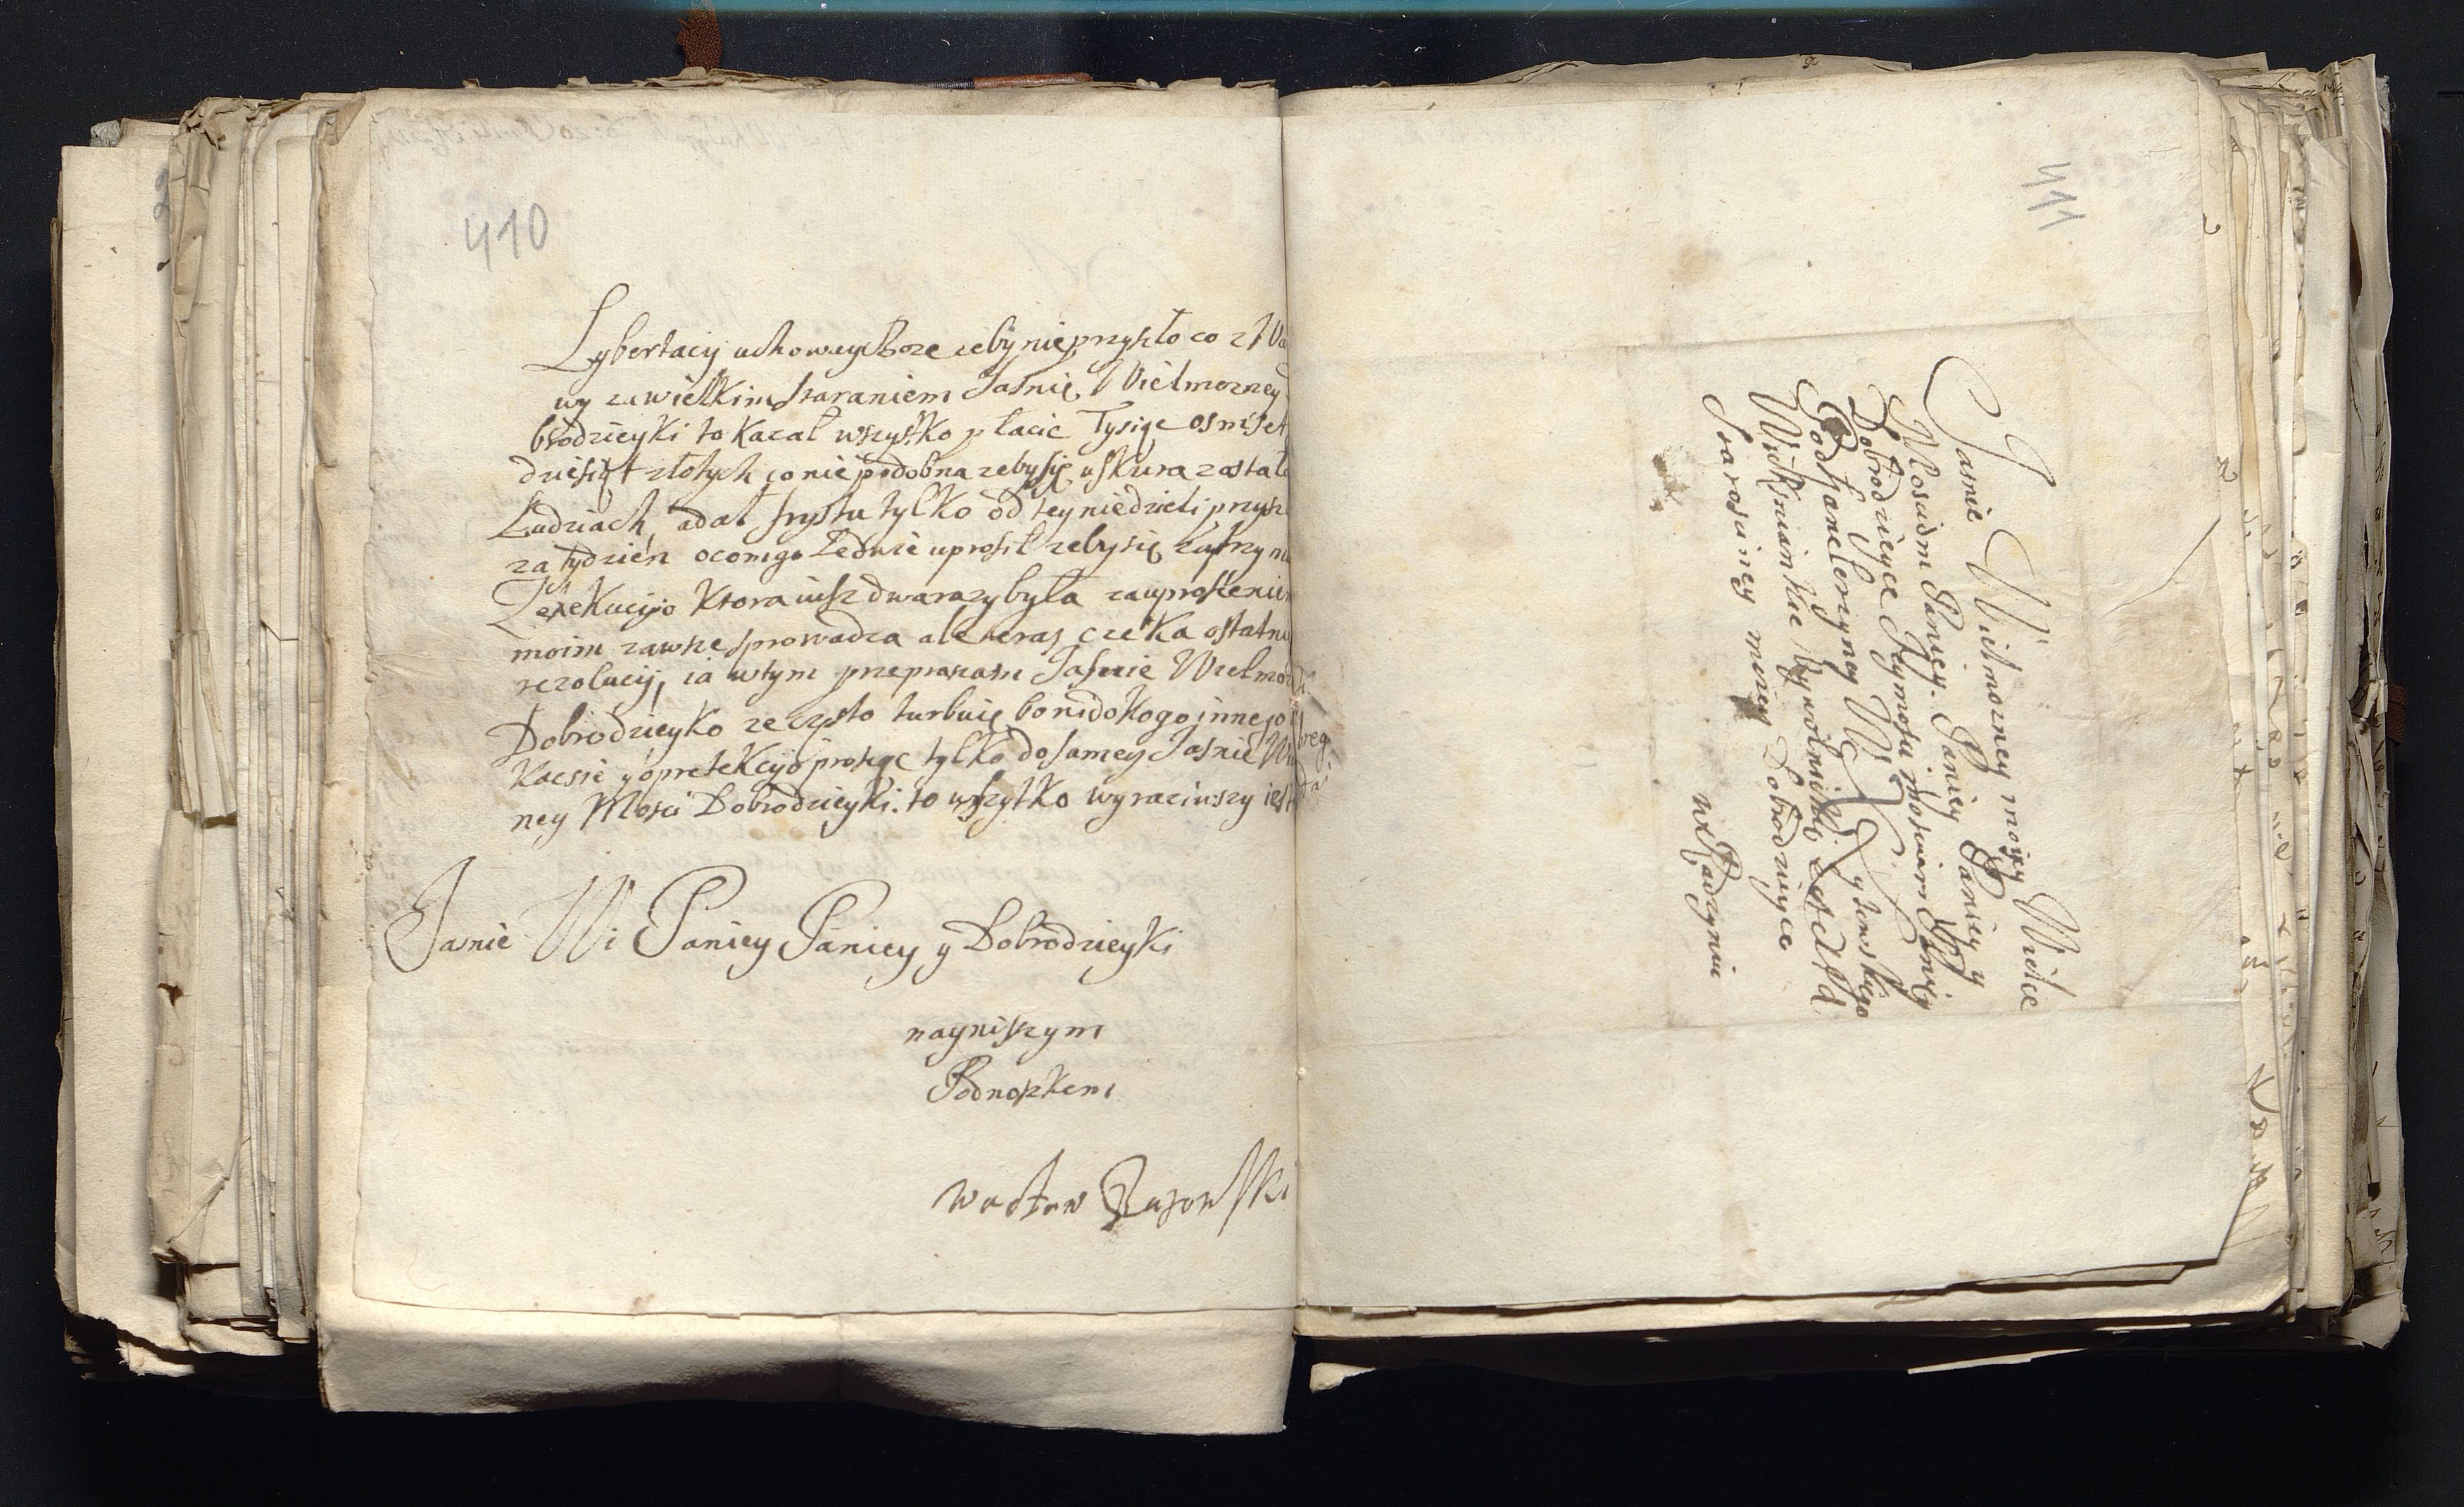 410
Lybertacij uchoway Boze zeby nie przyszło co z
wy za wielkim staraniem Jasnie Wielmozney
brodzieyki to kazał wszystko płacic Tysiąc osmset
dziesiąt złotych co nie podobna zeby się uskura zostala
Ludziach, a dał frysztu tylko od tey niedzieli przysz
za tydzien o co mgo Ledwie uprosił zeby się zatrzyma
Z exekucyio ktora iusz dwa razy była za uproszenie
moim zawsze sprowadza ale teras czeka ostatni
rezolucij, ia w tym przeprasam Jasnie Wielmoz
Dobrodzieyko ze czesto turbuię bo nido kogo innego
y o pretekcyio prosząc tylko do samey Jasnie Wi
ney Mosci Dobrodzieyki. to wszytko wyraziwszy iest
Jasnie Wi Paniey Paniey y Dobrodzieyki
nayniszym
Podnoszkem
wacław
411
Jasnie Wielmozney mojey Wielce
Mosciom Paniey. Paniey Paniey y
Dobrodzieyce Jeymosci mosciem Paniey
Podkanclerzyney W X Lytewskiego
Starosciney mniey Dobrodzieyce
w Radzyniu